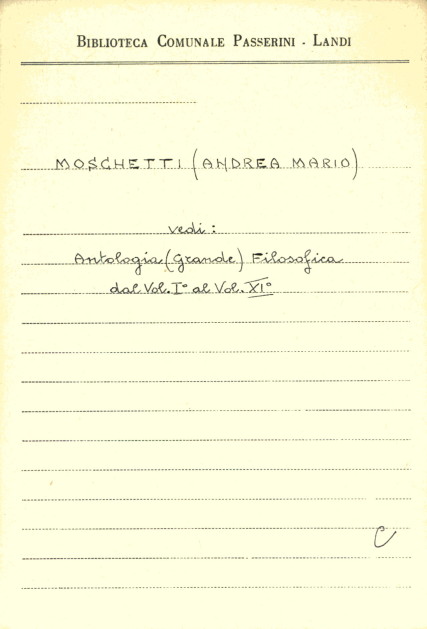 BIBLIOTECA COMUNALE PASSERINI - LANDI
MOSCHETTI (ANDREA MARIO)
vedi:
Antologia (Grande) Filosofica
dal Vol. I° al Vol. XI°
C